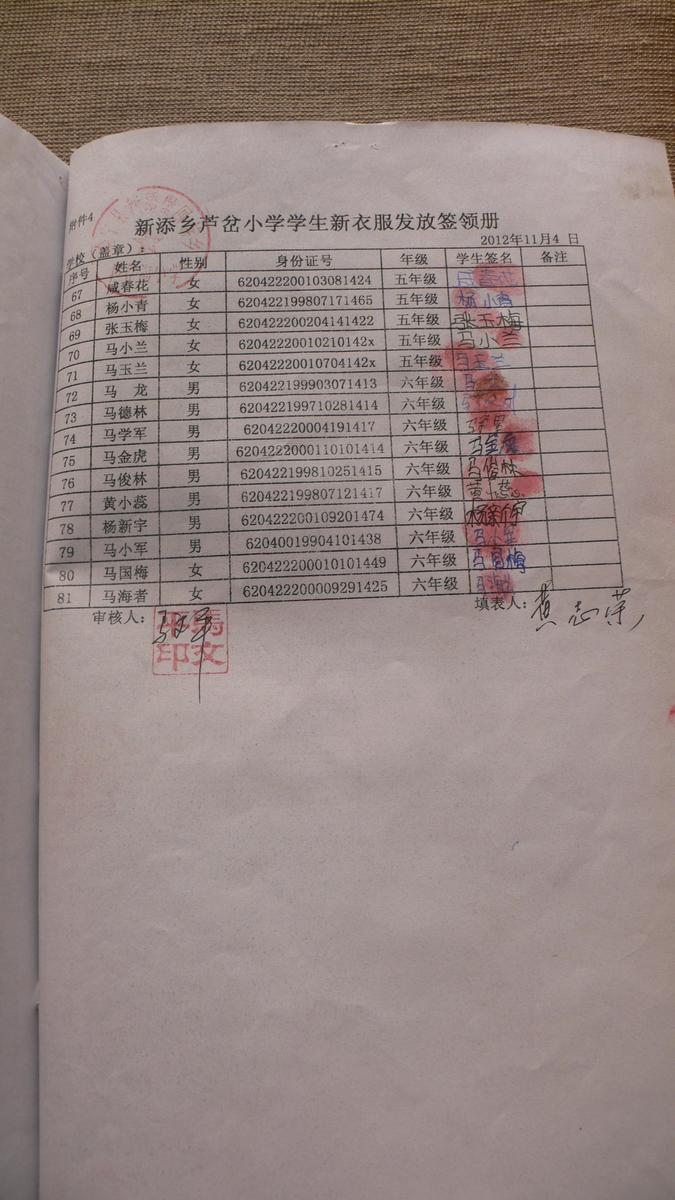 附件4
新添乡芦岔小学学生新衣服发放签领册
学校（盖章）： 2012年11月4 日
序号 姓名 性别 身份证号 年级 学生签名 备注
67 咸春花 女 620422200103081424 五年级 咸春花
68 杨小青 女 620422199807171465 五年级 杨小青
69 张玉梅 女 620422200204141422 五年级 张玉梅
70 马小兰 女 62042220010210142x 五年级 马小兰
71 马玉兰 女 62042220010704142x 五年级 马玉兰
72 马 龙 男 620422199903071413 六年级 马
73 马德林 男 620422199710281414 六年级
74 马学军 男 62042220004191417 六年级
75 马金虎 男 6204222000110101414 六年级 马金虎
76 马俊林 男 620422199810251415 六年级 马俊林
77 黄小蕊 男 620422199807121417 六年级 黄小蕊
78 杨新宇 男 620422200109201474 六年级 杨新宇
79 马小军 男 62040019904101438 六年级 马小军
80 马国梅 女 620422200010101449 六年级 马国梅
81 马海者 女 620422200009291425 六年级 马
审核人： 填表人： 黄志荣
马文平印